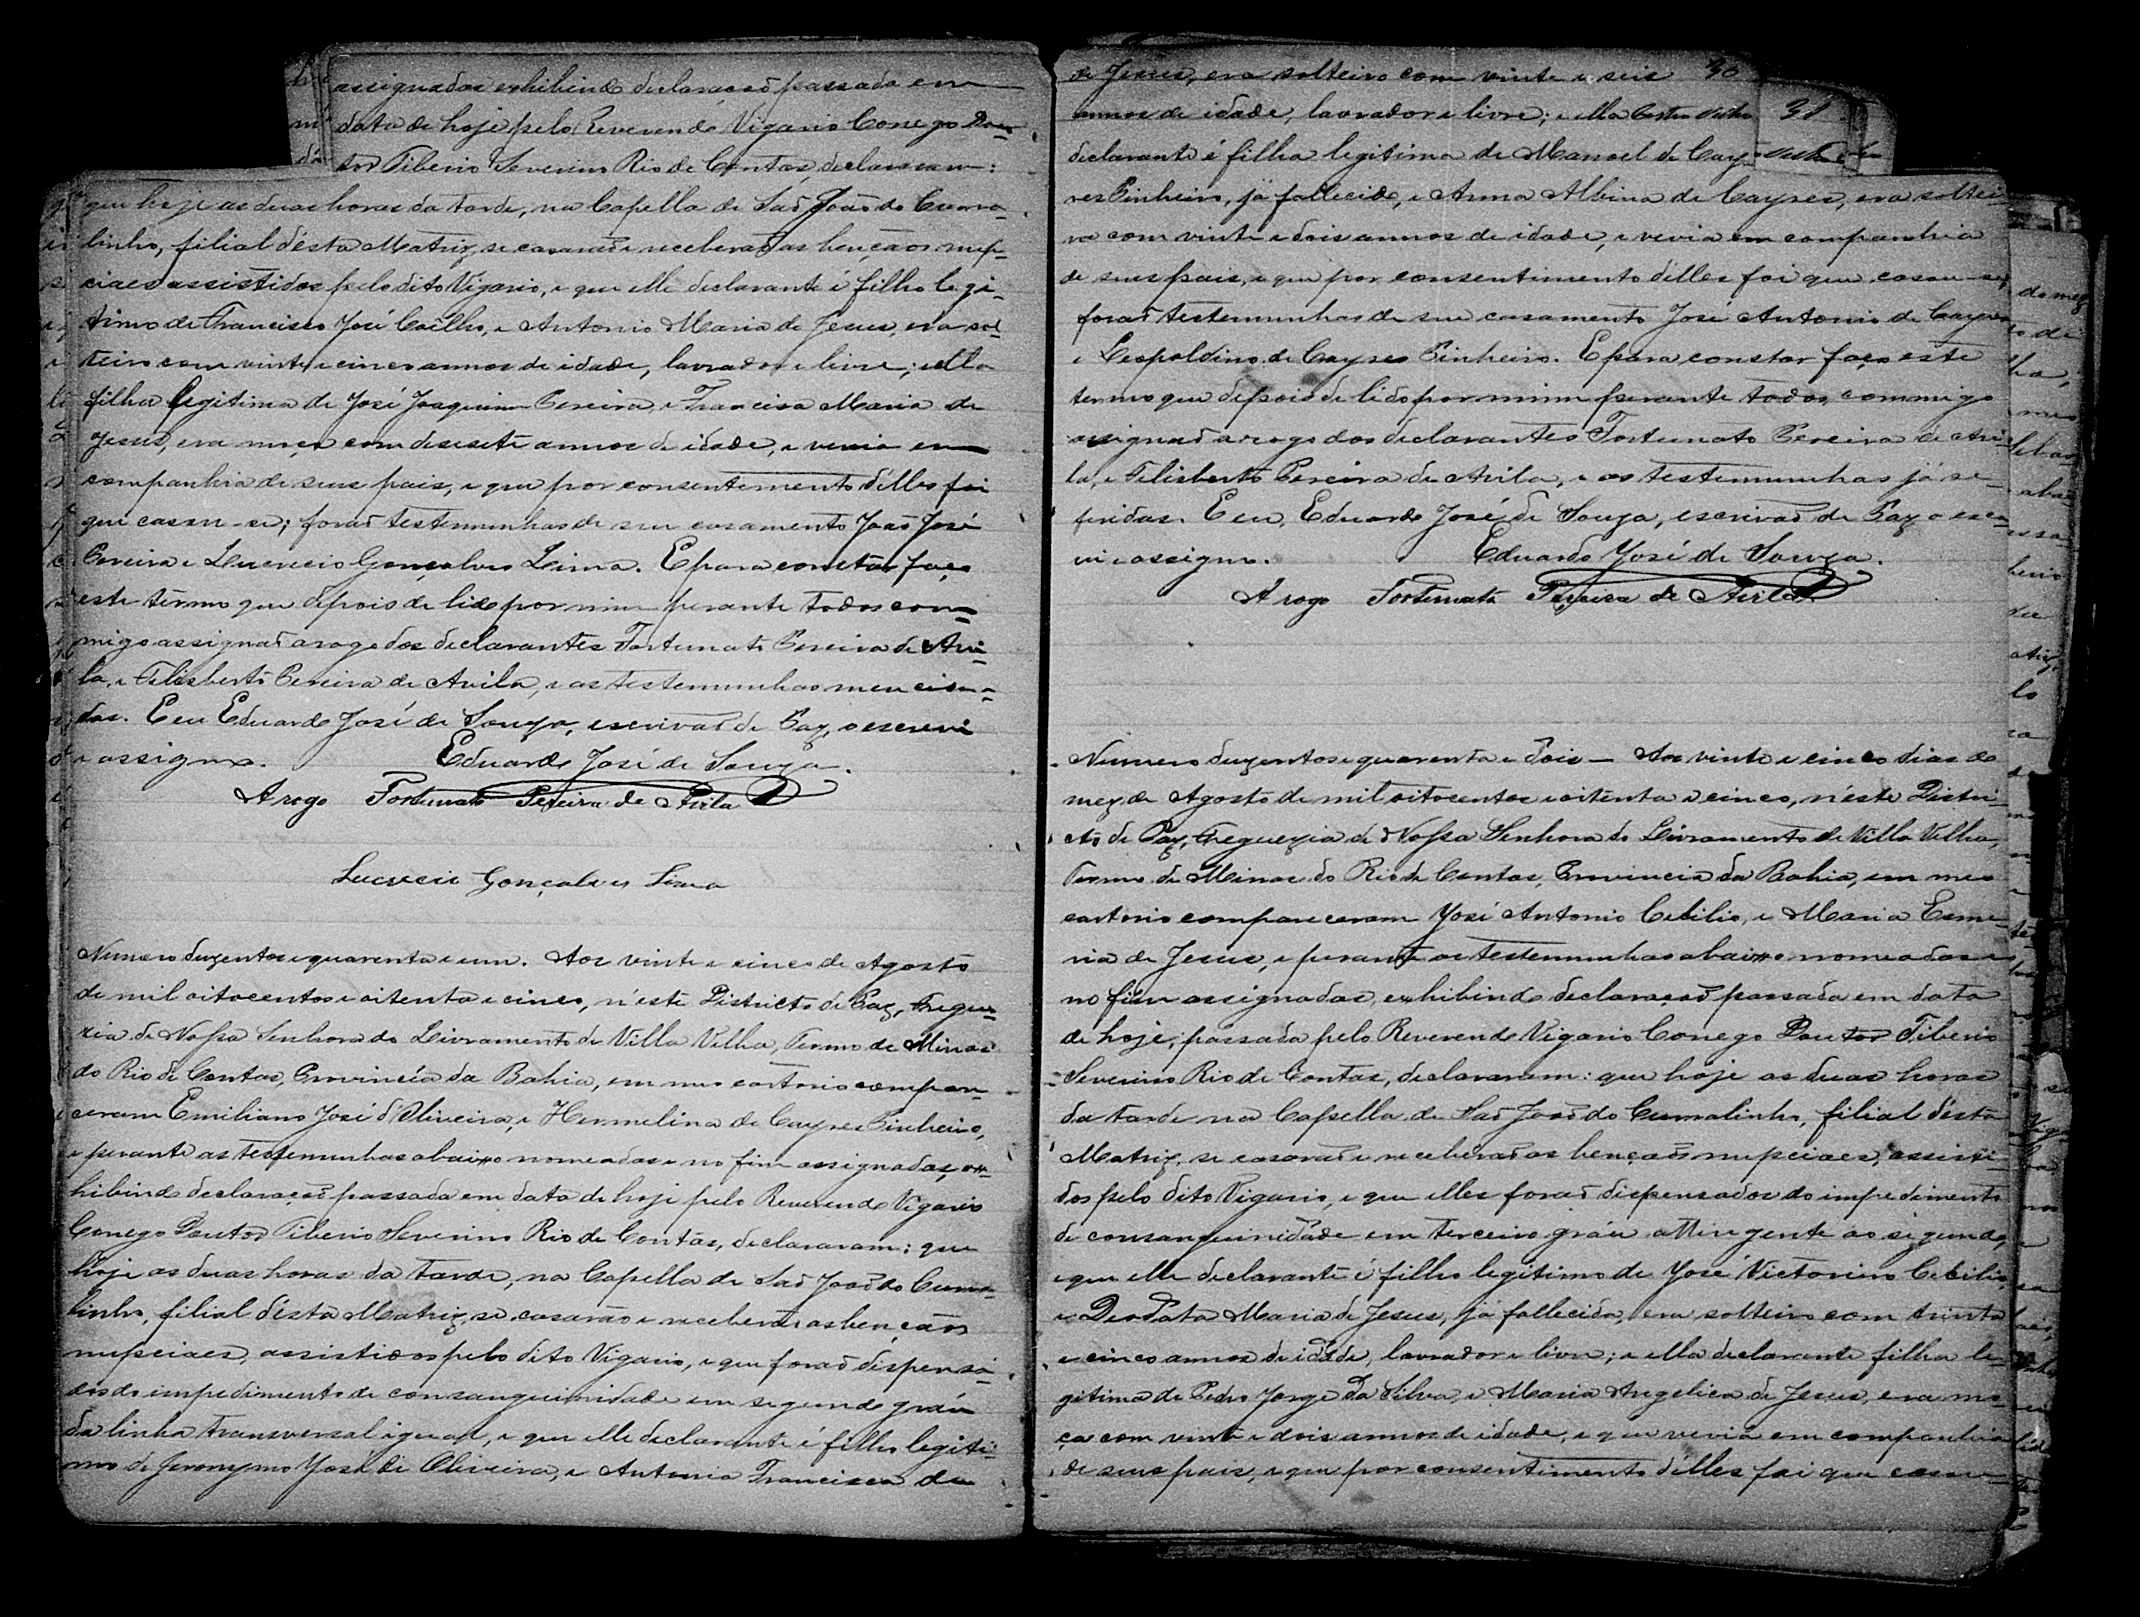 assignados exhibindo declaração passada em
data de hoje pelo Reverendo Vigario Conego Dou-
tor Tiberio Severino Rio de Contas, declararam:
que hoje as duas horas da tarde, na Capella de São João do Cuma-
linho, filial d'ésta Matriz, se casarão e receberão as bençãos nup-
ciaes assistidos pelo dito Vigario, e que elle declarante é filho legi-
timo de Francisco José Coêlho, e Antonia Maria de Jesus, era sol
teiro com vinte e cinco annos de idade, lavrador e livre; e ella
filha legitima de José Joaquim Pereira, e Francisca Maria de
Jesus, era moça com desesete annos de idade, e vevia em
companhia de seus pais, e que por consentimento d'élles foi
que casou-se; forão testemunhas de seu casamento João José
Pereira e Lucrecio Gonçalves Lima. E para constar faço
este têrmo que depois de lido por mim perante todos com-
migo assignão a rogo dos declarantes Fortunato Pereira de Avi-
la, e Felisberto Pereira de Avila, e as testemunhas menciona-
das. E eu Eduardo José de Souza, escrivão de Paz, o escrevi
e assigno. Eduardo José de Souza.
A rogo Fortunato Pereira de Avila
Lucrecio Gonçalves Lima
Numero duzentos e quarenta e um. Aos vinte e cinco de Agosto
de mil oitocentos e oitenta e cinco, n'éste Districto de Paz, Fregue-
zia de Nossa Senhora do Livramento de Villa Velha, Termo de Minas
do Rio de Contas, Provincia da Bahia, em meu cartorio compare-
ceram Emiliano José d'Oliveira, e Hermelina de Cayres Pinheiro,
e perante as testemunhas abaixo nomeadas e no fim assignadas, ex-
hibindo declaração passada em data de hoje pelo Reverendo Vigario
Conego Doutor Tiberio Severino Rio de Contas, declararam: que
hoje as duas horas da tarde, na Capella de São João do Cuma-
linho, filial d'ésta Matriz, se casarão e receberão as bençãos
nupciaes, assistidos pelo dito Vigario, e que forão dispensa-
dos do impedimento de consanguinidade em segundo gráu
da linha transversal igual, e que elle declarante é filho legiti-
mo de Jeronymo José de Oliveira, e Antonia Francisca de
de Jesus, era solteiro com vinte e seis 30
annos de idade, lavrador e livre; e ella 31
declarante é filha legitima de Manoel de Cay-
res Pinheiro, já fallecido, e Anna Albina de Cayres, era soltei
ra com vinte e dois annos de idade, e vevia em companhia
de seus pais, e que por consentimento d'élles foi que casou-se;
forão testemunhas de seu casamento José Antonio de Cayres
e Leopoldino de Cayres Pinheiro. E para constar faço este
termo que depois de lido por mim perante todos, commigo
assignão a rogo dos declarantes Fortunato Pereira de Avi-
la, e Felisberto Pereira de Avila, e as testemunhas já re-
feridas. E eu, Eduardo José de Souza, escrivão de Paz o escre-
vi e assigno. Eduardo José de Souza.
A rogo Fortunato Pereira de Avila
Numero duzentos e quarenta e dois — Aos vinte e cinco dias do
mez de Agosto de mil oitocentos e oitenta e cinco, n'éste Distri-
cto de Paz, Freguezia de Nossa Senhora do Livramento de Villa Velha,
Termo de Minas do Rio de Contas, Provincia da Bahia, em meu
cartorio compareceram José Antonio Cebilio, e Maria Esme-
ria de Jesus, e perante as testemunhas abaixo nomeadas e
no fim assignadas, exhibindo declaração passada em data
de hoje, passada pelo Reverendo Vigario Conego Doutor Tiberio
Severino Rio de Contas, declararam: que hoje as duas horas
da tarde na Capella de São João do Cumalinho, filial d'ésta
Matriz, se casarão e receberão as bençãos nupciaes, assisti-
dos pelo dito Vigario, e que elles forão dispensados do impedimento
de consanguinidade em terceiro gráu attingente ao segundo,
e que elle declarante é filho legitimo de José Victorino Cebilio,
e Deodata Maria de Jesus, já fallecida, era solteiro com trinta
e cinco annos de idade, lavrador e livre; e ella declarante filha le-
gitima de Pedro Jorge da Silva, e Maria Angelica de Jesus, era mo-
ça com vinte e dois annos de idade, e que vevia em companhia
de seus pais, e que por consentimento d'élles foi que casou-